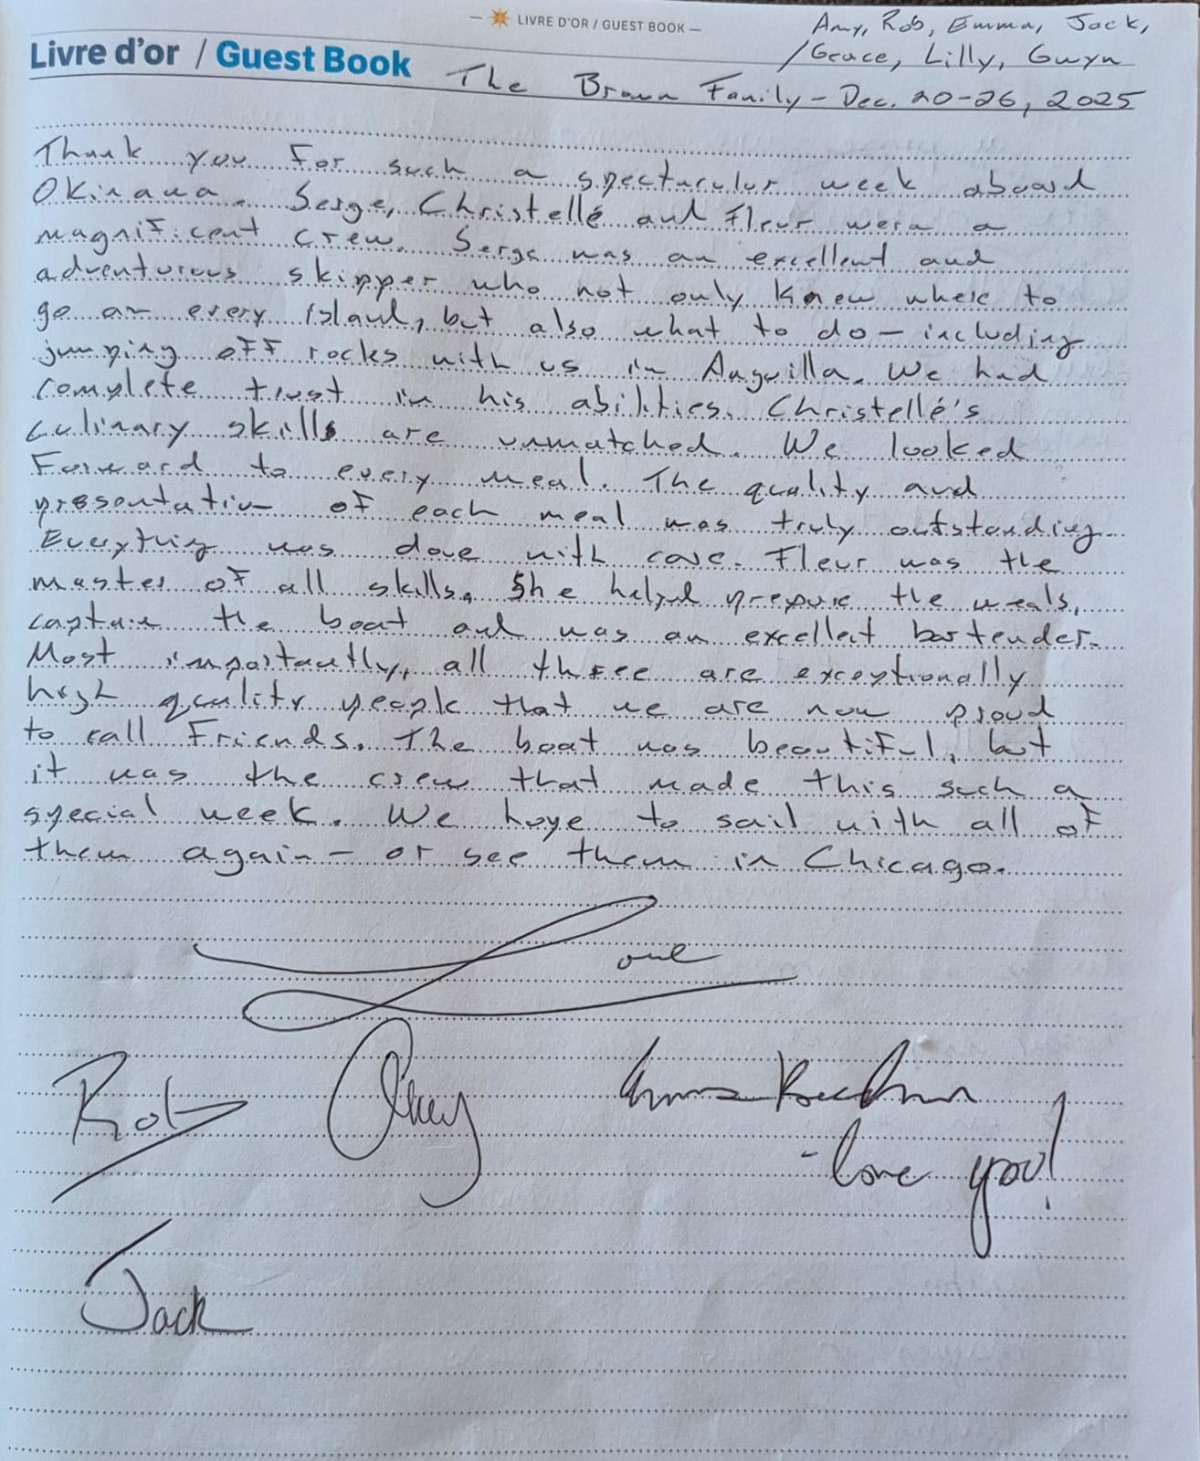 — LIVRE D'OR / GUEST BOOK —
Amy, Rob, Emma, Jack,
/Grace, Lilly, Gwyn
Livre d'or / Guest Book
The Braun Family – Dec. 20-26, 2025
Thank you for such a spectacular week aboard
Okinawa. Serge, Christellé and Fleur were a
magnificent crew. Serge was an excellent and
adventurous skipper who not only knew where to
go on every island, but also what to do – including
jumping off rocks with us in Anguilla. We had
complete trust in his abilities. Christellé's
culinary skills are unmatched. We looked
forward to every meal. The quality and
presentation of each meal was truly outstanding.
Everything was done with care. Fleur was the
master of all skills. She helped prepare the meals,
captain the boat and was an excellent bartender.
Most importantly, all three are exceptionally
high quality people that we are now proud
to call friends. The boat was beautiful, but
it was the crew that made this such a
special week. We hope to sail with all of
them again – or see them in Chicago.
Love
Rob Amy Emma
- love you!
Jack